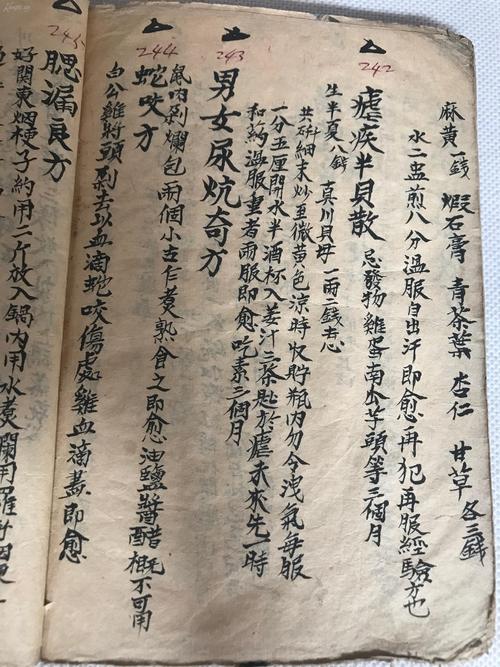 麻黄一錢 煆石膏 青茶葉 杏仁 甘草 各三錢
水二盅煎八分温服自出汗即愈再犯再服經驗方也
242
瘧疾半貝散 忌發物雞蛋南瓜芋頭等三個月
生半夏八錢 真川貝母一兩二錢去心
共研細末炒至微黄色涼時收貯瓶内勿令洩氣每服
一分五厘開水半酒杯入姜汁三茶匙於瘧未來先一時
和葯温服重者兩服即愈吃素三個月
243
男女尿炕奇方
鼠肉剁爛包兩個小
煮熟食之即愈油鹽醬醋概不可用
244
蛇咬方
白公雞將頭剁去以血滴蛇咬傷處雞血滴盡即愈
245
腮漏良方
好関東烟梗子約用二斤放入鍋内用水煮爛用羅